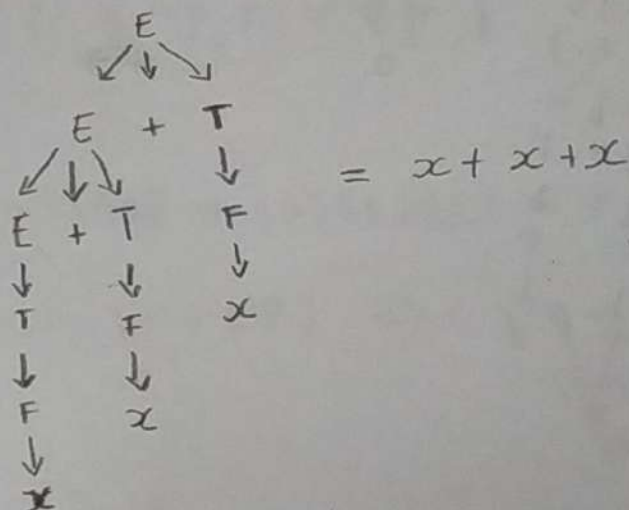 E
E + T
= x + x + x
E + T F
T F x
F x
x